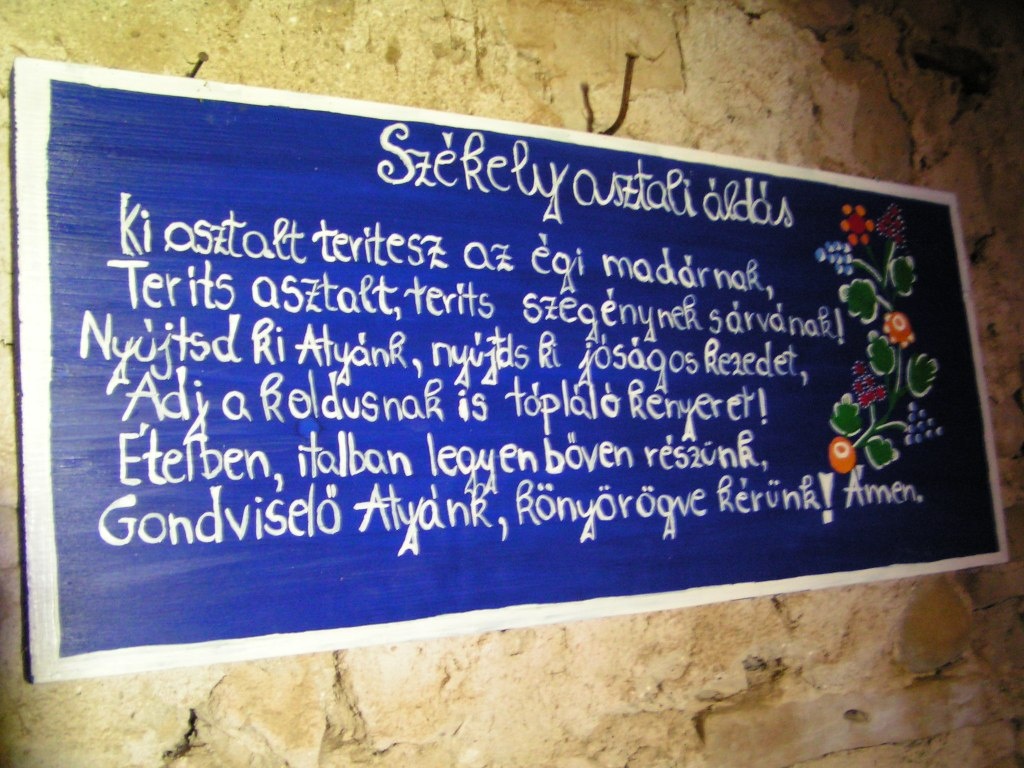 Székely asztali áldás
Ki asztalt teritesz az égi madárnak,
Terits asztalt, terits szegénynek sárvának!
Nyújtsd ki Atyánk, nyújtds ki jóságos kezedet,
Adj a koldusnak is tápláló kenyeret!
Ételben, italban legyen bőven részünk,
Gondviselő Atyánk, könyörögve kérünk! Ámen.